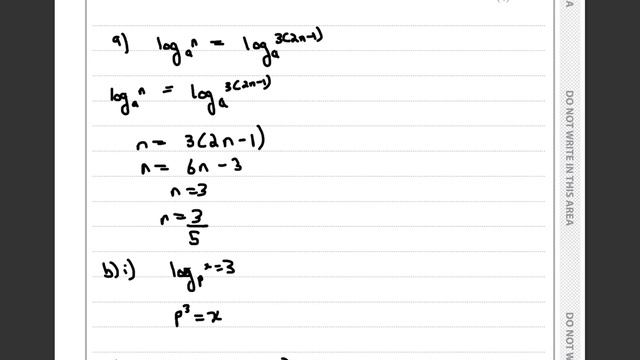 a) logₐ n = logₐ 3(2n-1)
logₐ n = logₐ 3(2n-1)
n = 3(2n-1)
n = 6n - 3
n = 3
n = 3/5
b) i) logₚ x = 3
p³ = x
A
DO NOT WRITE IN THIS AREA
DO NOT W